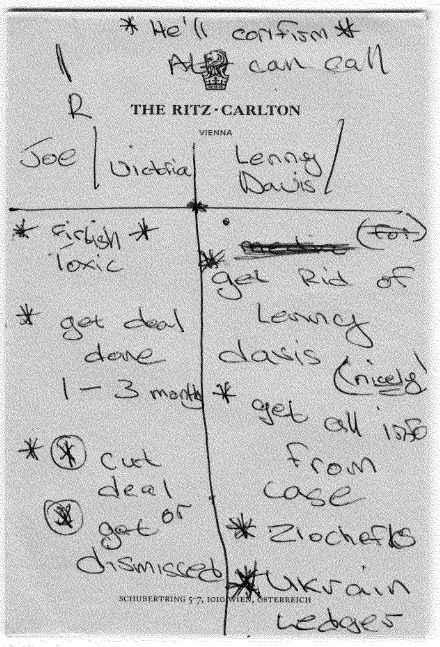 * He'll confirm *
can call
R
THE RITZ-CARLTON
VIENNA
Joe
Victoria
Lenny
Davis
* Firtash *
toxic
* get deal
done
1 - 3 months
* * cut
deal
* get or
dismissed
* get Rid of
Lenny
davis
(nicely)
* get all info
from
case
* Zlochefks
* Ukrain
Ledger
SCHUBERTRING 5-7, 1010 WIEN, ÖSTERREICH